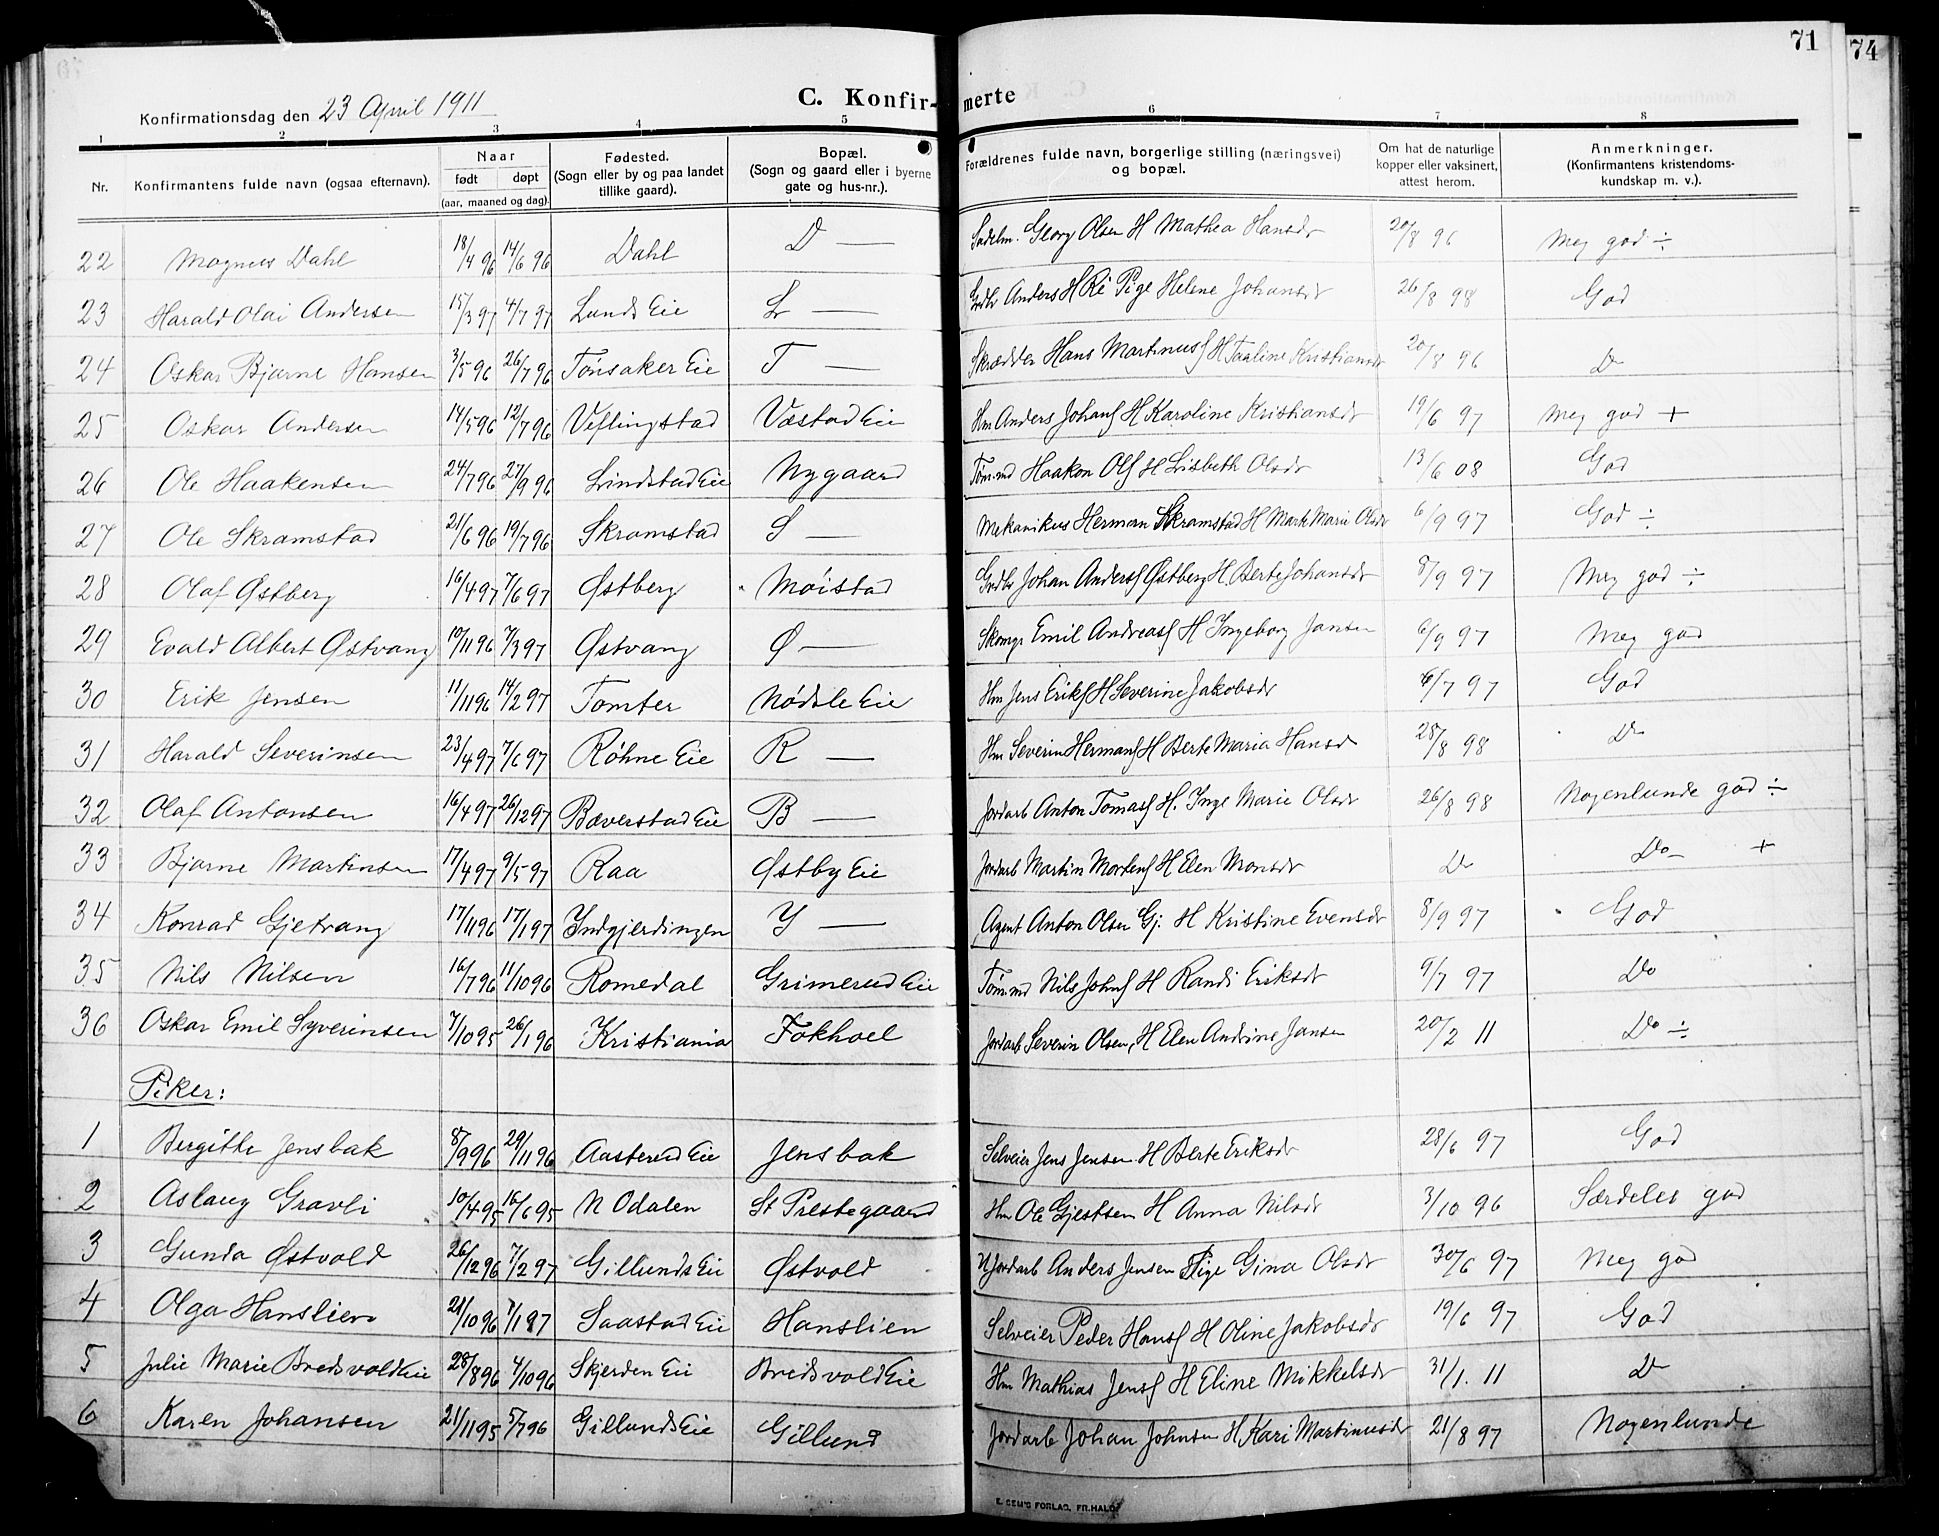 71
74
Konfirmationsdag den 23 April 1911
C. Konfir-merte
1 2 3 4 5 6 7 8
Nr. Konfirmantens fulde navn (ogsaa efternavn). Naar født døpt (aar, maaned og dag). Fødested. (Sogn eller by og paa landet tillike gaard). Bopæl. (Sogn og gaard eller i byerne gate og hus-nr.). Forældrenes fulde navn, borgerlige stilling (næringsvei) og bopæl. Om hat de naturlige kopper eller vaksinert, attest herom. Anmerkninger. (Konfirmantens kristendomskundskap m. v.).
22 Magnus Dahl 18/4 96 14/6 96 Dahl D — Sadelm. Georg Olsen H Mathea Hansdr 20/8 96 Meg god ÷
23 Harald Olai Andersen 15/3 97 4/7 97 Lunds Eie L — Grdbr Anders H Ré Pige Helene Johansdr 26/8 98 God
24 Oskar Bjarne Hansen 3/5 96 26/7 96 Tønsaker Eie T — Skrædder Hans Martinusſ H Taaline Kristiansdr 20/8 96 Do
25 Oskar Andersen 14/5 96 12/7 96 Viflingstad Vostad Eie Hm Anders Johansſ H Karoline Kristiansdr 19/6 97 Meg god +
26 Ole Haakensen 24/7 96 27/9 96 Lindstad Eie Nygaard Tømmd Haakon Olſ H Lisbeth Olsdr 13/6 08 God
27 Ole Skramstad 21/6 96 19/7 96 Skramstad S — Mekanikus Herman Skramstad H Mark Marie Olsdr 6/9 97 God ÷
28 Olaf Østberg 16/4 97 7/6 97 Østberg Møistad Grdbr Johan Andersſ Østberg H Berte Johansdr 8/9 97 Meg god ÷
29 Evald Albert Østvang 10/11 96 7/3 97 Østvang Ø — Skomgr Emil Andreasſ H Ingeborg Jansen 6/9 97 Meg god
30 Erik Jensen 11/11 96 14/2 97 Tomter Nødsle Eie Hm Jens Eriksſ H Severine Jakobsdr 6/7 97 God
31 Harald Severinsen 23/4 97 7/6 97 Røhne Eie R — Hm Severin Hermansſ H Berte Maria Hansd 28/8 98 Do
32 Olaf Antonsen 16/4 97 26/12 97 Bæverstad Eie B — Jordarb Anton Tomasſ H. Inge Marie Olsdr 26/8 98 Nogenlunde god ÷
33 Bjarne Martinsen 17/4 97 9/5 97 Raa Østby Eie Jordarb Martin Mortensſ H Elen Monsdr Do Do +
34 Konrad Gjetvang 17/11 96 17/1 97 Yndgjerdingen Y — Agent Anton Olsen Gj. H Kristine Evensdr 8/9 97 God
35 Nils Nilsen 16/7 96 11/10 96 Romedal Grimerud Eie Tømmd Nils Johnſ H Randi Eriksdr 9/7 97 Do
36 Oskar Emil Syverinsen 7/10 95 26/1 96 Kristiania Fokhoel Jordarb Severin Olsen, H Elen Andrine Jansen 20/2 11 Do ÷
Piker:
1 Bergitte Jensbak 8/9 96 29/11 96 Aasterud Eie Jensbak Selveier Jens Jensen H Berte Eriksdr 28/6 97 God
2 Aslaug Gravli 10/4 95 16/6 95 N Odalen St Prestegaard Hm Ole Gjestsen H Anna Nilsdr 3/10 96 Særdeles god
3 Gunda Østvold 26/12 96 7/2 97 Gillunds Eie Østvold Jordarb Anders Jensen Pige Gina Olsdr 30/6 97 Meg god
4 Olga Hanslien 21/10 96 1/1 87 Saastad Eie Hanslien Selveier Peder Hansſ H Oline Jakobsdr 19/6 97 God
5 Julie Marie Bredsvold Eie 28/8 96 4/10 96 Skjerden Eie Bredsvold Eie Hm Mathias Jensſ H Eline Mikkelsdr 31/1. 11 Do
6 Karen Johansen 21/11 95 5/7 96 Gillunds Eie Gillund Jordarb Johan Johnsen H Kari Martinusdr 21/8 97 Nogenlunde
E. SEM'S FORLAG, FR.HALD